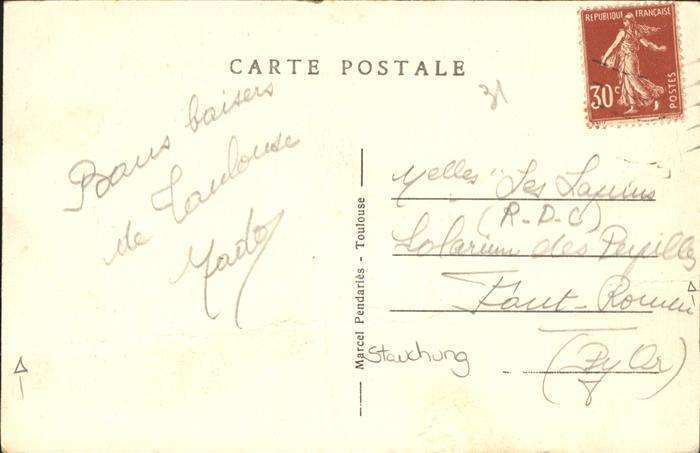 CARTE POSTALE
REPUBLIQUE FRANÇAISE
30c
POSTES
31
Bons baisers
de Toulouse
Mado
Marcel Pendariès - Toulouse
Melles "Les Lapins
(R-D-C)
Solarium des Pupilles
Font-Romeu
(Py Or)
Stauchung